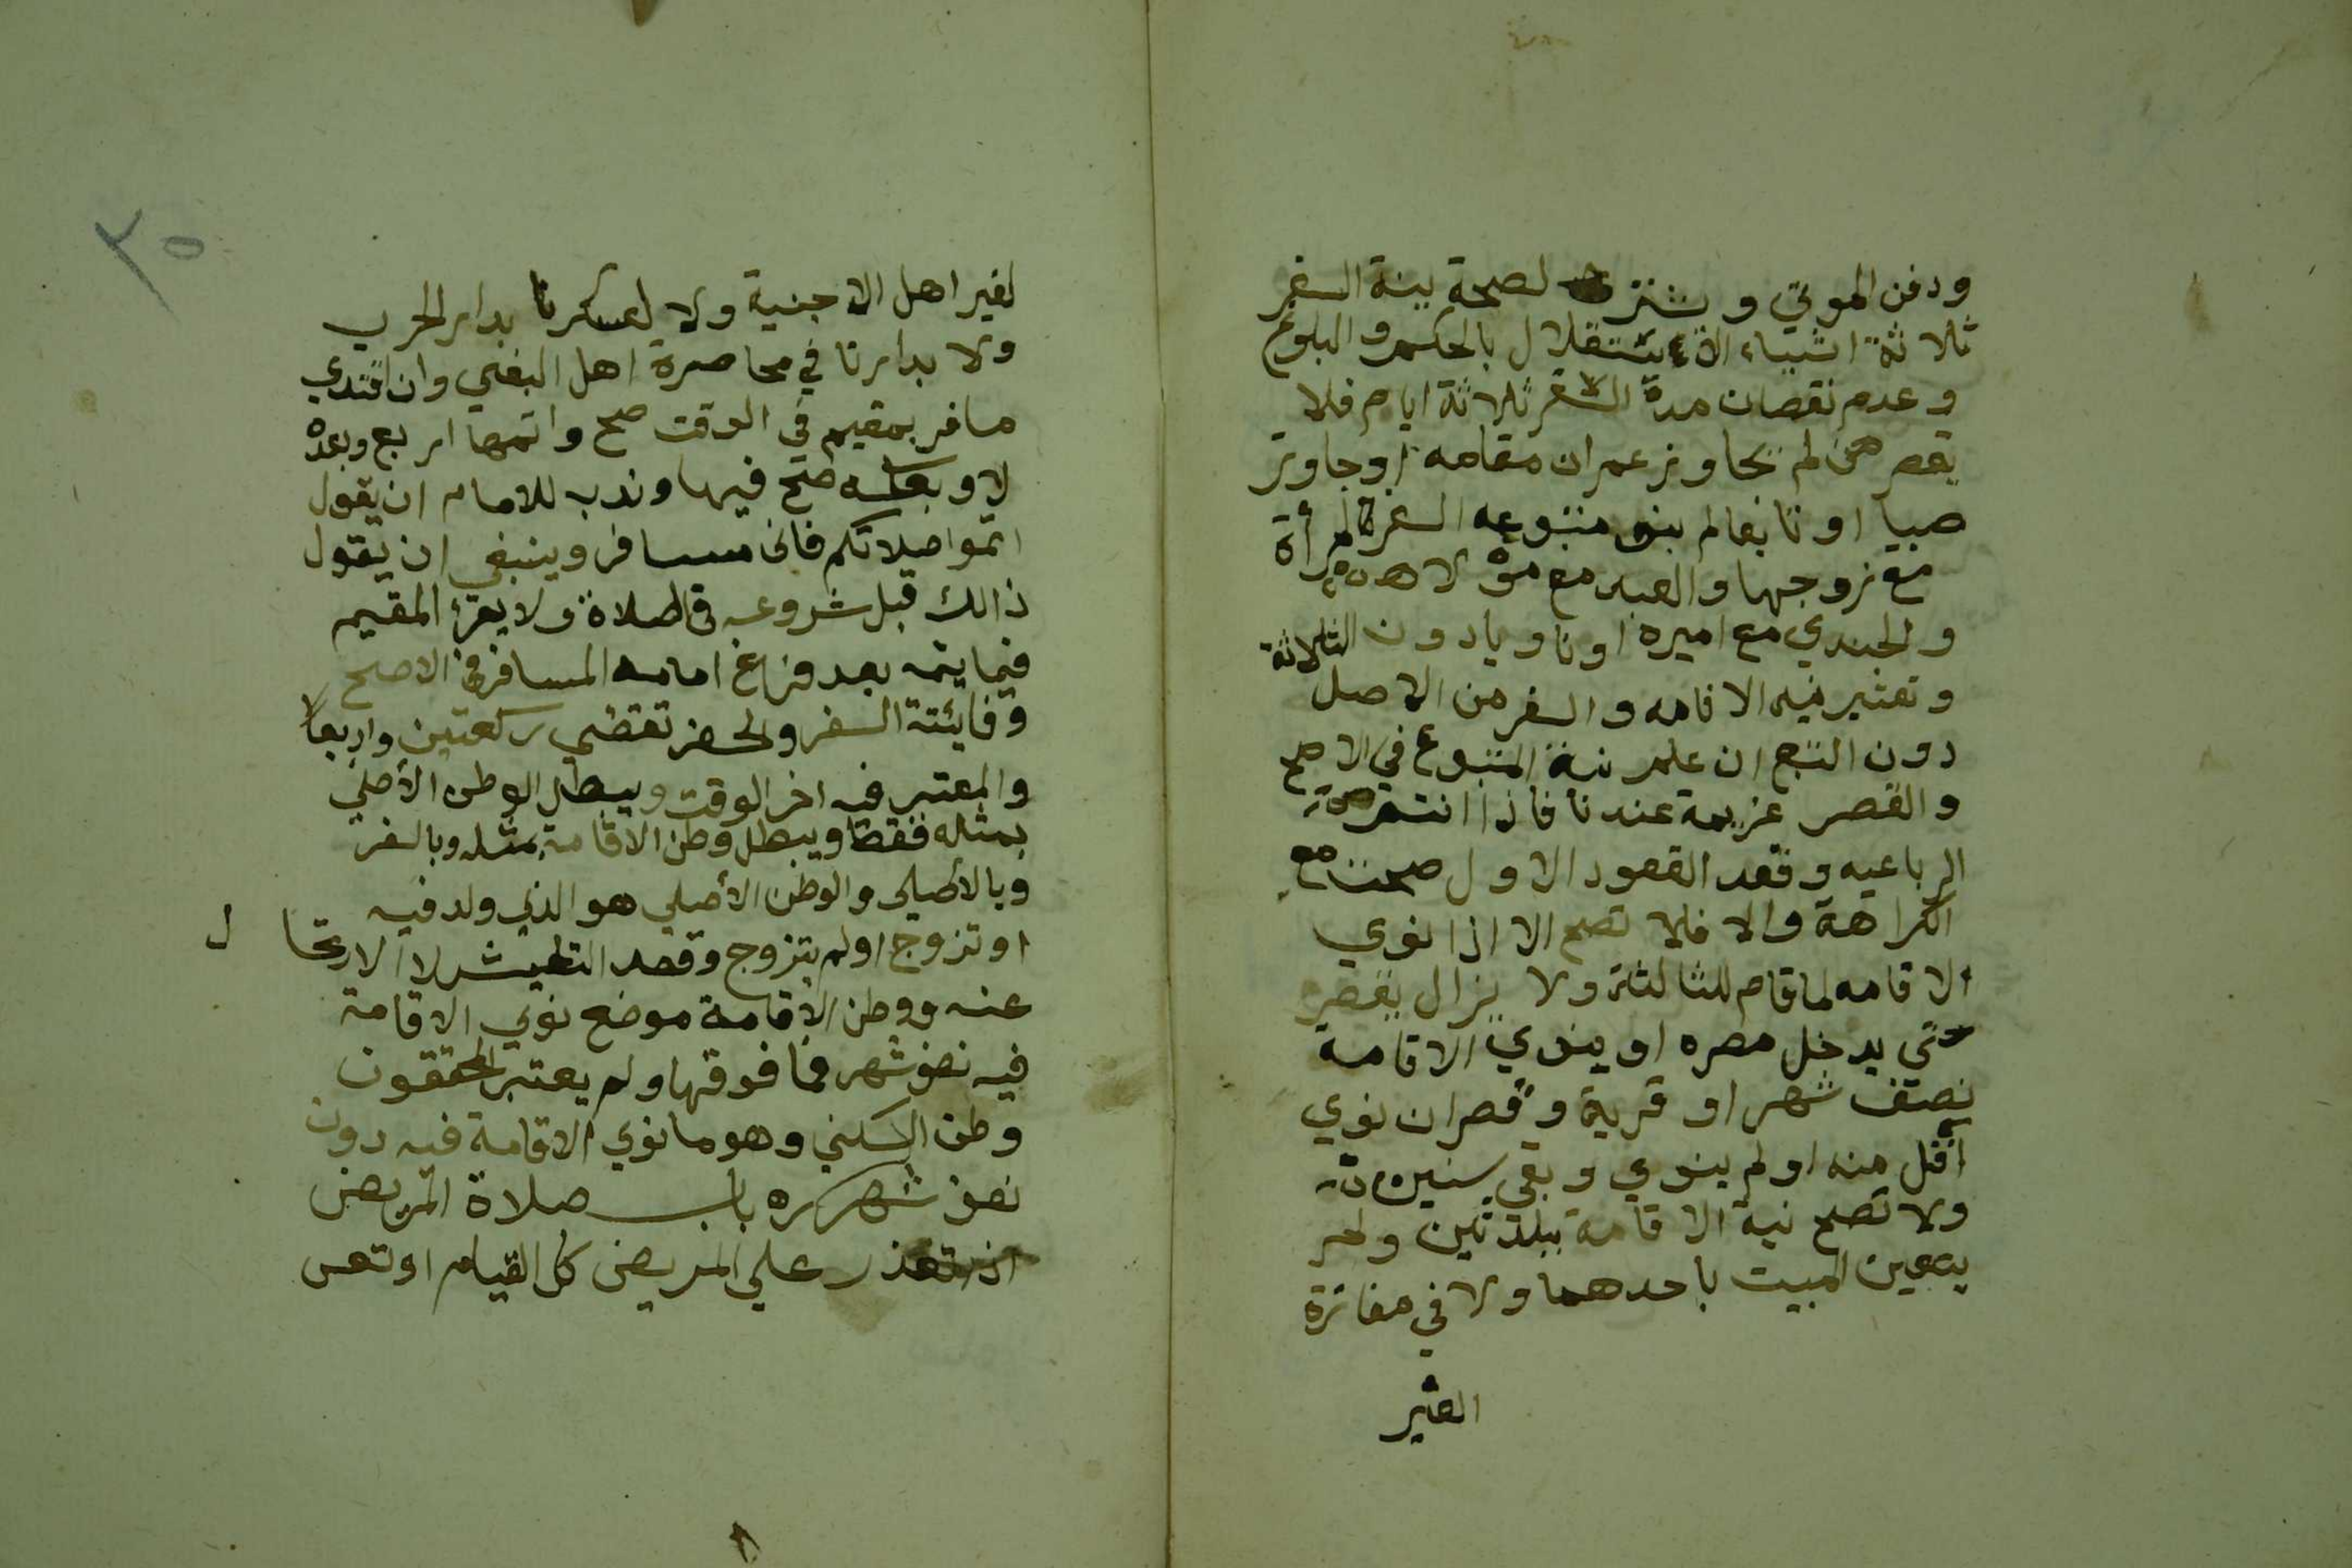 ودفن الموتي ويشترط لصحة نية السفر
ثلاثة اشياء الاستقلال بالحكم والبلوغ
وعدم نقصان مدة السفر ثلاثة ايام فلا
يقصر من لم يجاوز عمران مقامه اوجاوز
صبيا او تابعا لم ينو متبوعه السفر كالمرأة
مع زوجها والعبد مع مولاه
والجندي مع اميره او ناويا دون الثلاثة
وتعتبر نية الاقامه والسفر من الاصل
دون التبع ان علم نية المتبوع في الاصح
والقصر عزيمة عندنا فاذا اتم
الرباعيه وقعد القعود الاول صحت مع
الكراهة والا فلا تصح الا اذا نوي
الاقامه لما قام للثالثة ولا يزال يقصر
حتي يدخل مصره او ينوي الاقامة
نصف شهر او قرية وقصر ان نوي
اقل منه او لم ينوي وبقي سنين
ولا تصح نية الاقامة ببلدتين ولم
يتعين المبيت باحدهما ولا في مفازة
الغير
٣٥
لغير اهل الاخبية ولا لعسكرنا بدار الحرب
ولا بدارنا في محاصرة اهل البغي وان اقتدي
مسافر بمقيم في الوقت صح واتمها اربع وبعده
لا وبعكسه صح فيها وندب للامام ان يقول
اتموا صلاتكم فاني مسافر وينبغي ان يقول
ذالك قبل شروعه في الصلاة ولا يقرأ المقيم
فيما يتمه بعد فراغ امامه المسافر في الاصح
وفايتة السفر والحضر تقتضي ركعتين واربعا
والمعتبر فيه اخر الوقت ويبطل الوطن الأصلي
بمثله فقط ويبطل وطن الاقامة بمثله وبالسفر
وبالأصلي والوطن الأصلي هو الذي ولد فيه
او تزوج اولم يتزوج وقصد التعيش لا الارتحال
عنه ووطن الاقامة موضع نوي الاقامة
فيه نصف شهر فما فوقها ولم يعتبر المحققون
وطن السكني وهو ما نوي الاقامة فيه دون
نصف شهر باب صلاة المريض
اذا تعذر علي المريض كل القيام او تعسر